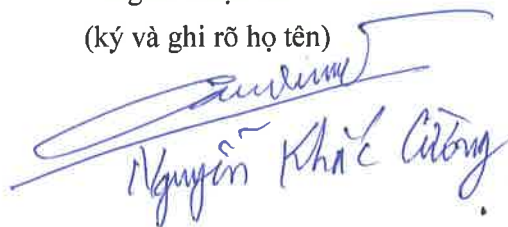 (ký và ghi rõ họ tên)
Nguyễn Khắc Cường